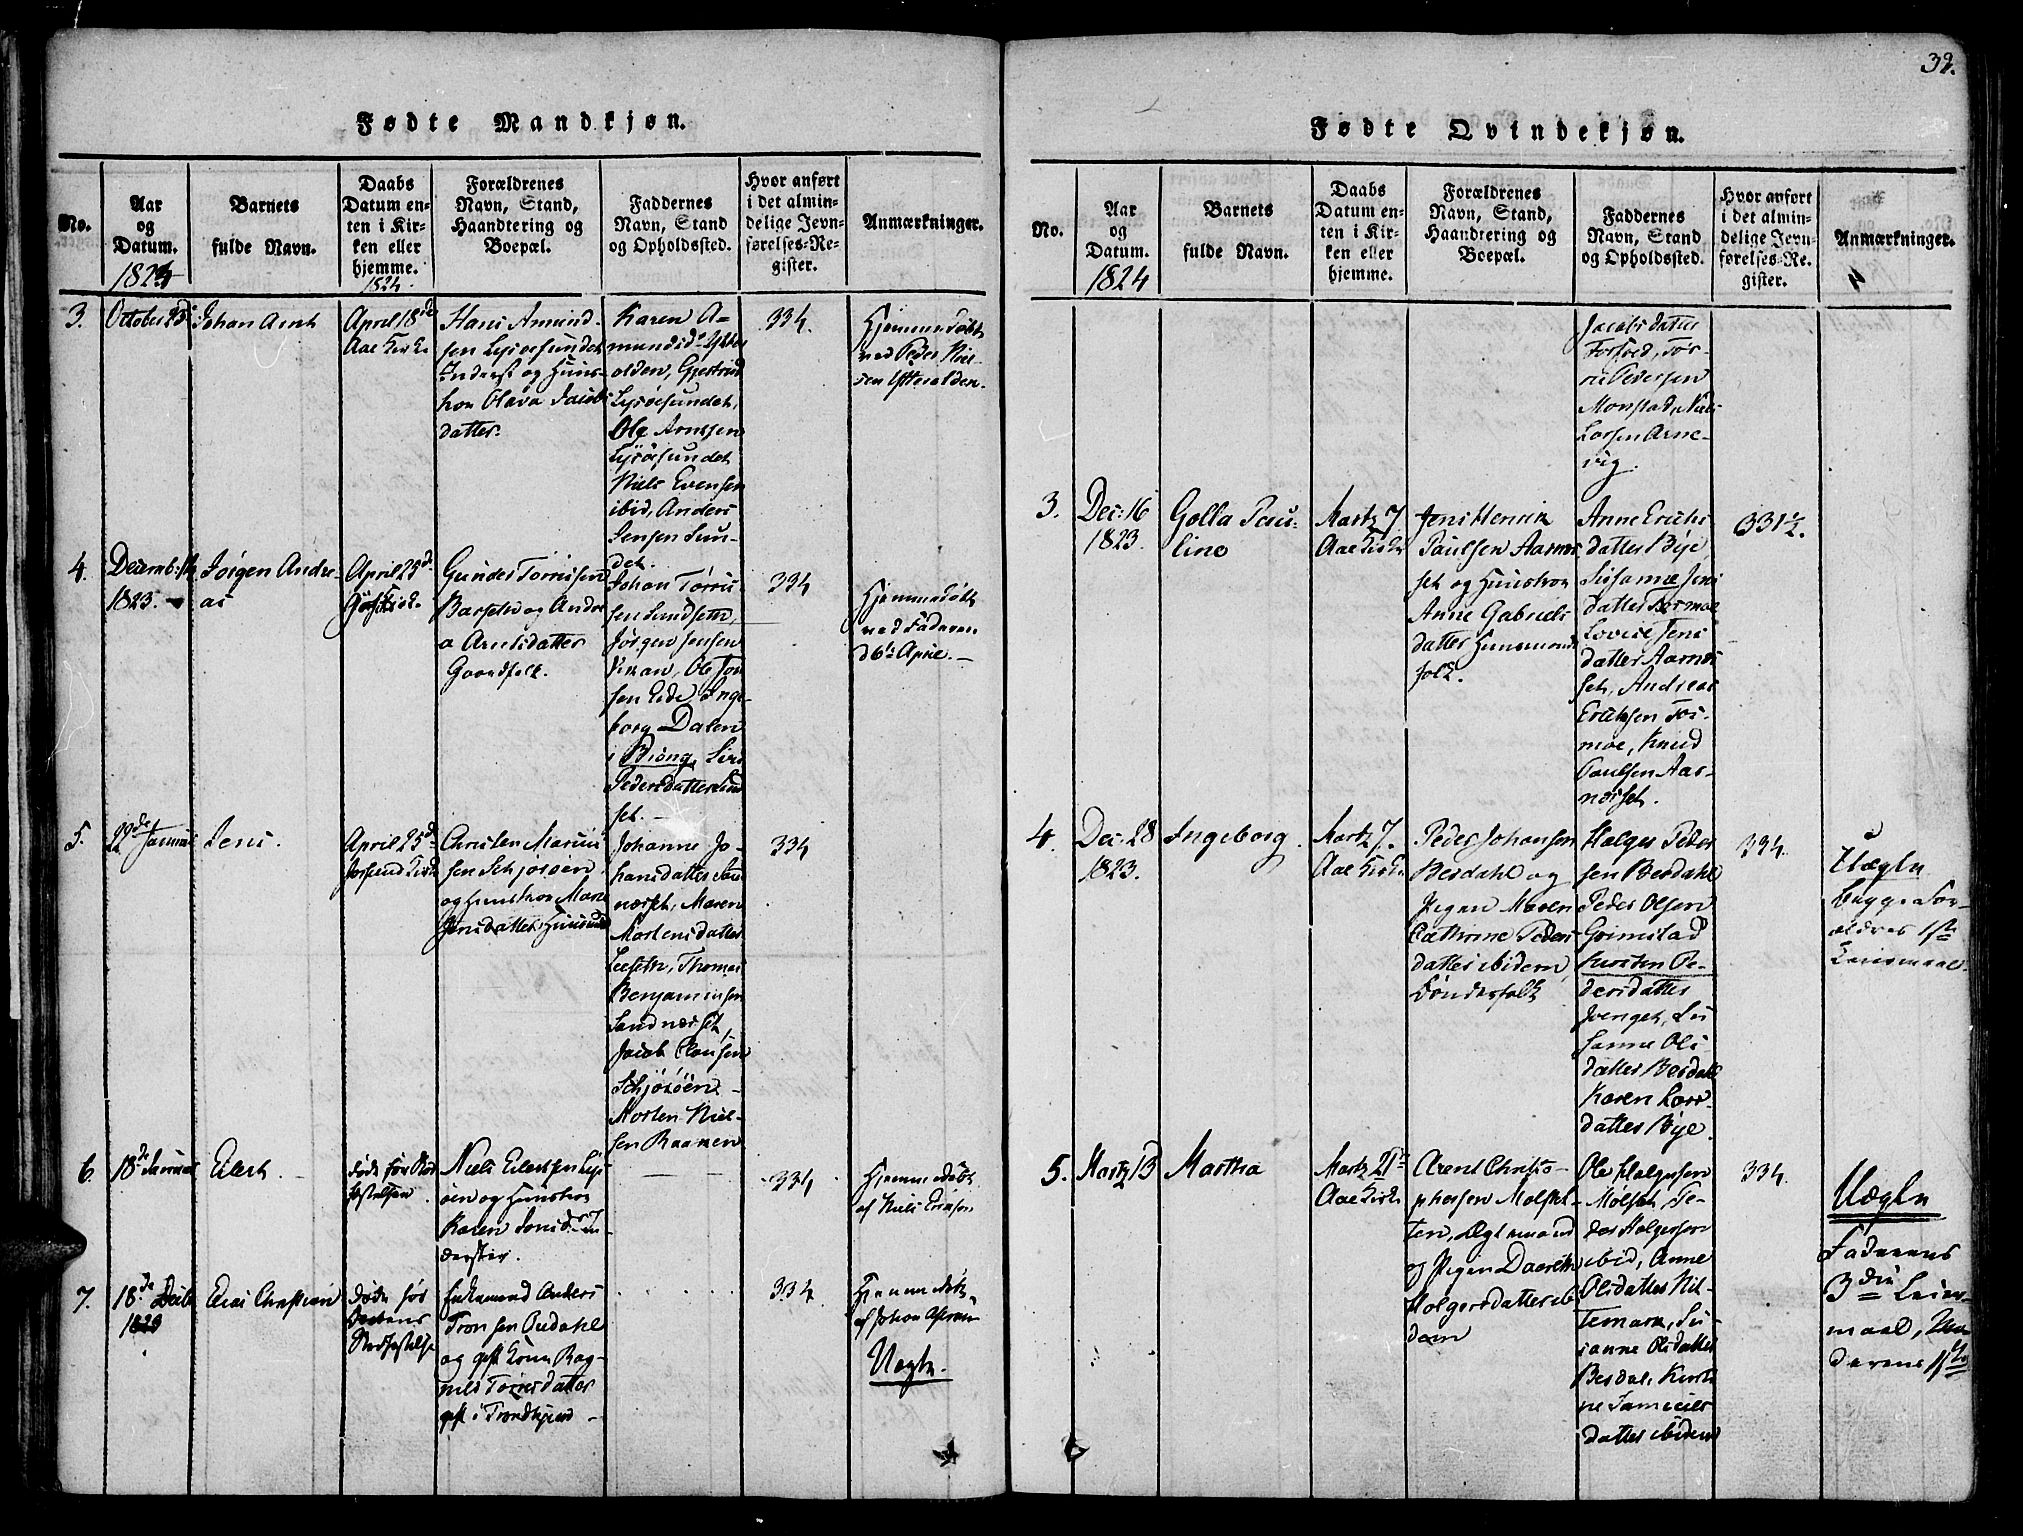 39.
Fødte Mandkjøn.
No.
Aar
og
Datum.
1824
Barnets
fulde Navn.
Daabs
Datum en-
ten i Kir-
ken eller
hjemme.
1824.
Forældrenes
Navn, Stand,
Haandtering og
Boepæl.
Faddernes
Navn, Stand
og Opholdssted.
Hvor anført
i det almin-
delige Jevn-
førelses-Re-
gister.
Anmærkninger.
3.
October 23de
Johan Arnt
April 18de
Aae Kirke
Hans Amund-
sen Lysøesundet
Inderst og Huus-
hon Olava Jacobs
datter.
Karen A-
mundsd. Ytter
olden, Gjertrud
Lysøesundet,
Ole Arntsen
Lysøesundet
Niels Evensen
ibid, Anders
Jensen Sun-
det.
334.
Hjemmedøbt
ved Peder Niel-
sen Ytterolden.
4.
Decemb: 14
1823.
Jørgen Andre-
as
April 25de
Kirke
Gunder Torrisen
Barseth og Andre
a Arntsdatter
Gaardfolk.
Johan Torris
sen Sundseth,
Jørgen Jensen
Ole Jon
sen Eide, Inge-
borg Dalen
i Biöng, Siri
Pedersdatter Sund
set.
334
Hjemmedøbt
ved Faderen
d 6te April.
5.
22de Januar
Jens.
April 25de
Jøssund Kirke
Christen Marius
sen Schjørøen
og Huustroe Maren
Jensdatter Huusmd
Johanne Jo-
hansdatter San
nærset, Maren
Mortensdatter
Leeseth, Thomas
Benjaminsen
Sandnærset,
Jacob Clausen
Schjørøen
Morten Niel-
sen Raanen
334
6.
18de Januar
Elert
døde før Stad
fæstelsen
Niels Elertsen Lys
øen og Huustroe
Karen Jonsd. In
derster.
334
Hjemmedøbt
af Niels Eriksen
7.
18de Decb
1823
Elias Christian
døde før
Daabens
Stadfæstelse
Enkemand Anders
Tronsen Opdahl
og gift Kone Rag-
nild Torresdatter
gift i Trondhjem
334
Hjemmedøbt
af Johan
Uægte.
Fødte Qvindekjøn.
No.
Aar
og
Datum.
1824
Barnets
fulde Navn.
Daabs
Datum en-
ten i Kir-
ken eller
hjemme.
Forældrenes
Navn, Stand,
Haandtering og
Boepæl.
Faddernes
Navn, Stand
og Opholdssted.
Hvor anført
i det almin-
delige Jevn-
førelses-Re-
gister.
Anmærkninger.
Jacobs datter
Forfred, Tor-
ris Pedersen
Monstad, Niels
Larsen Arne-
vig.
3.
Dec: 16
1823.
Golla Pau-
line
Martz 7
Aae Kirke
Jens Henrik
Paulsen Aarnes
set og Huustroe
Anne Gabriels
datter Huusmands
folk.
Anne Erichs
datter Bye,
Susanne Jens
datter Tormoe
Lovise Jens
datter Aarnes
set, Andreas
Eriksen Tor-
moe, Knud
Paulsen Aar-
nesset.
331½.
4.
Dec: 28
1823.
Ingeborg.
Martz 7.
Aae Kirke
Peder Johansen
Besdahl og
Pigen Maren
Cathrine Peders
datter ibidem,
Bøndersfolk
Holger Peder
sen Besdahl
Peder Olsen
Grimstad
Kirsten Pe-
dersdatter
Svenget, Su
sanne Ols
datter Besdahl
Karen Lars-
datter Bye.
334.
Uægte
begge For-
ældres 1ste
Leiermaal.
5.
Martz 13
Martha
Martz 21de
Aae Kirke
Arent Christo-
phersen Mølslet-
ten, Ægtemand
og Pigen Dorethe
Holgersdatter ibi
dem
Ole Holgersen
Mølset, Pe-
der Holgersen
ibid, Anne
Olsdatter Mil-
temark, Su
sanne Olsdatter
Besdal, Kirsti
ne Samuels
datter ibidem
334.
Uægte
Faderens
3die Leier-
maal, Mo-
derens 1ste